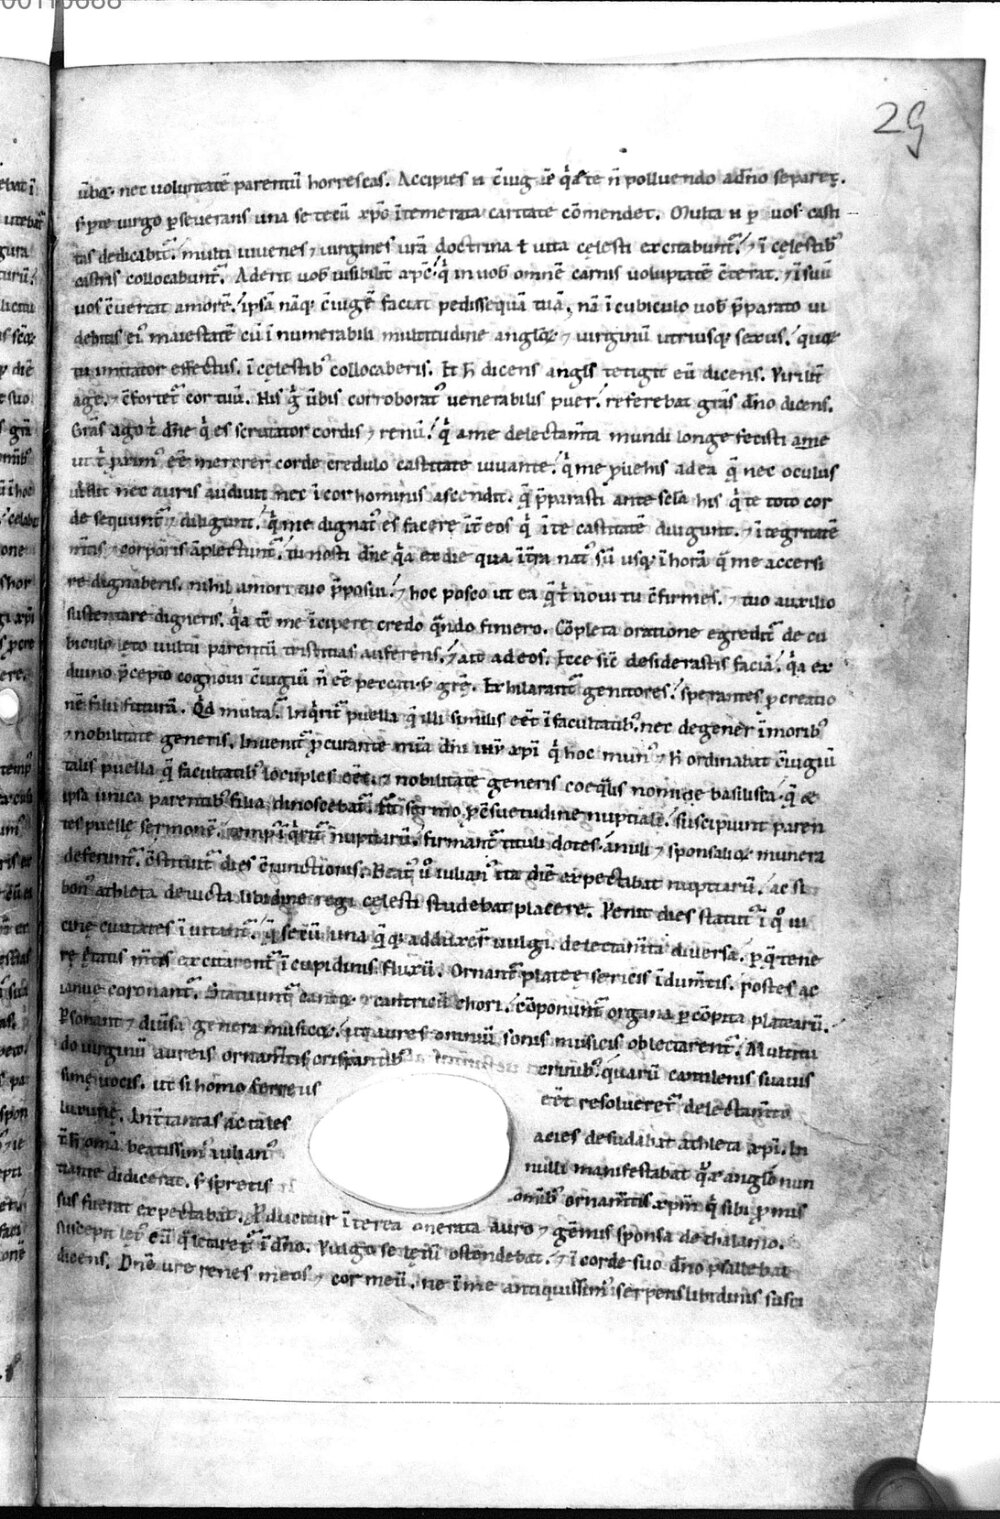 00110688
29
ūba. nec voluntatē parentū horrescas. Accipies n̄ ꝯiugē q̄ te n̄ polluendo a dn̄o separet.
s; p te virgo ꝑseverans una se tecū xp̄o ītemerata caritate cōmendet. Multa n̄ ꝑ vos casti
tas dedicabit᷑. multi iuvenes ⁊ virgines vr̄a doctrina ⁊ vita cęlesti excitabunt᷑. ⁊ ī cęlestibꝰ
castris collocabunt᷑. Aderit vob̄ visibilit̄ xp̄c. q̄ in vob̄ omnē carnis voluptatē ꝯterat. ⁊ ī suū
vos ꝯvertat amorē. ipsā nāq; ꝯiugē faciat pedissequā tuā. nā ī cubiculo vob̄ p̄parato vi
debitis eiꝰ maiestatē cū īnumerabili multitudine angloꝝ ⁊ virginū utriusq; sexus. quoꝝ
tu imitator effectus. ī cęlestibꝰ collocaberis. Et h̄ dicens angl̄s tetigit eū dicens. Virilit̄
age. ⁊ ꝯfortet᷑ cor tuū. His g̊ v̄bis corroboratꝰ venerabilis puer. referebat gras dn̄o dicens.
Gras ago t̄ dn̄e q̄ es scrutator cordis ⁊ renū. q̄ a me delectam̄ta mundi longe fecisti a me
corde credulo castitate vivante. q̄ me ꝓvehis ad ea q̄ nec oculus
vidit nec auris audivit nec ī cor hominis ascendit. q̄ p̄parasti ante sc̄la his q̄ te toto cor
de sequunt᷑ ⁊ diligunt. q̄ me dignatꝰ es facere īt̄ eos q̄ ī te castitatē diligunt. ⁊ ītegritatē
m̄tis ⁊ corporis āplectunt᷑. tu nosti dn̄e q̄a ex die qua natꝰ sū usq; ī horā q̄ me accersi
re dignaberis. nihil amori tuo p̄posui. ⁊ hoc posco ut ea q̄ t̄ vovi tu ꝯfirmes. ⁊ tuo auxilio
sustentare digneris. q̄a tē me īcipere credo qn̄do finiero. Cōpleta oratione egredit᷑ de cu
biculo lęto vultu parentū tristitias auferens. ⁊ ait ad eos. Ecce sic̄ desiderastis faciā. q̄a ex
divino p̄cepto cognovi ꝯiugiū n̄ ēē peccati. Exhilarant᷑ genitores. sperantes ꝓcreatio
nē filii futurā. Qd̄ multa. Inq̄rit᷑ puella q̄ illi similis eēt ī facultatibꝰ. nec degener ī moribꝰ
⁊ nobilitate generis. Invenit᷑ ꝓcurante mīa dn̄i xp̄i q̄ hoc munꝰ ⁊ h̄ ordinabat ꝯiugiū
talis puella q̄ facultatibꝰ locuples eēt. ⁊ nobilitate generis coeq̄lis nomine basilissa. q̄ ⁊
ipsa unica parentibꝰ filia dinoscebat᷑. fit sermo ꝓ ꝯsuetudine nuptiali. suscipiunt paren
tes puelle sermonē. tempꝰ inq̄rit᷑ nuptiarū. firmant᷑ tituli dotes. anuli ⁊ sponsalioꝝ munera
deferunt᷑. ꝯstituit᷑ dies ꝯiunctionis. Beatꝰ vͦ iulianꝰ ita diē expectabat nuptiarū. ac si
bonꝰ athleta devicta libidine regi cęlesti studebat placere. Venit dies statutꝰ ī qͦ vi
cine civitates īvitant᷑. q̄ se cū una q̄q; adduxer̄ vulgi. delectam̄ta diversa. ꝑ q̄ tene
rę ętatis m̄tis excitarent᷑ ī cupidinis fluxū. Ornant᷑ plateę sericis īdum̄tis. postes ac
ianue coronant᷑. Statuunt᷑ cantoꝝ ⁊ cantricū chori. cōponunt᷑ organa ꝑ cōpita platearū.
Ꝑsonant ⁊ div̄sa genera musicoꝝ. ut aures omniū sonis musicis oblectarent᷑. Multitu
do virginū aureis ornam̄tis crispantibꝰ crinibꝰ. quarū cantilenis suavis
simę vocis. ut si homo ferreus eēt resolveret᷑ delectam̄to
luxurię. Int̄ tantas ac tales acies desudabat athleta xp̄i. In
beatissimꝰ iulianꝰ nulli manifestabat q̄ ab anglo nun
tiante didicerat. s; spretis om̄ibꝰ ornam̄tis. xp̄m q̄ sibi ꝓmis
sus fuerat expectabat. Ꝓducitur īterea onerata auro ⁊ gēmis sponsa de thalamo.
Suscepit lętꝰ eū q̄ letaret᷑ ī dn̄o. Vulgo se lętū ostendebat. ⁊ ī corde suo dn̄o psallebat
dicens. Dn̄e ure renes meos ⁊ cor meū. ne ī me antiquissimꝰ serpens libidinis susci